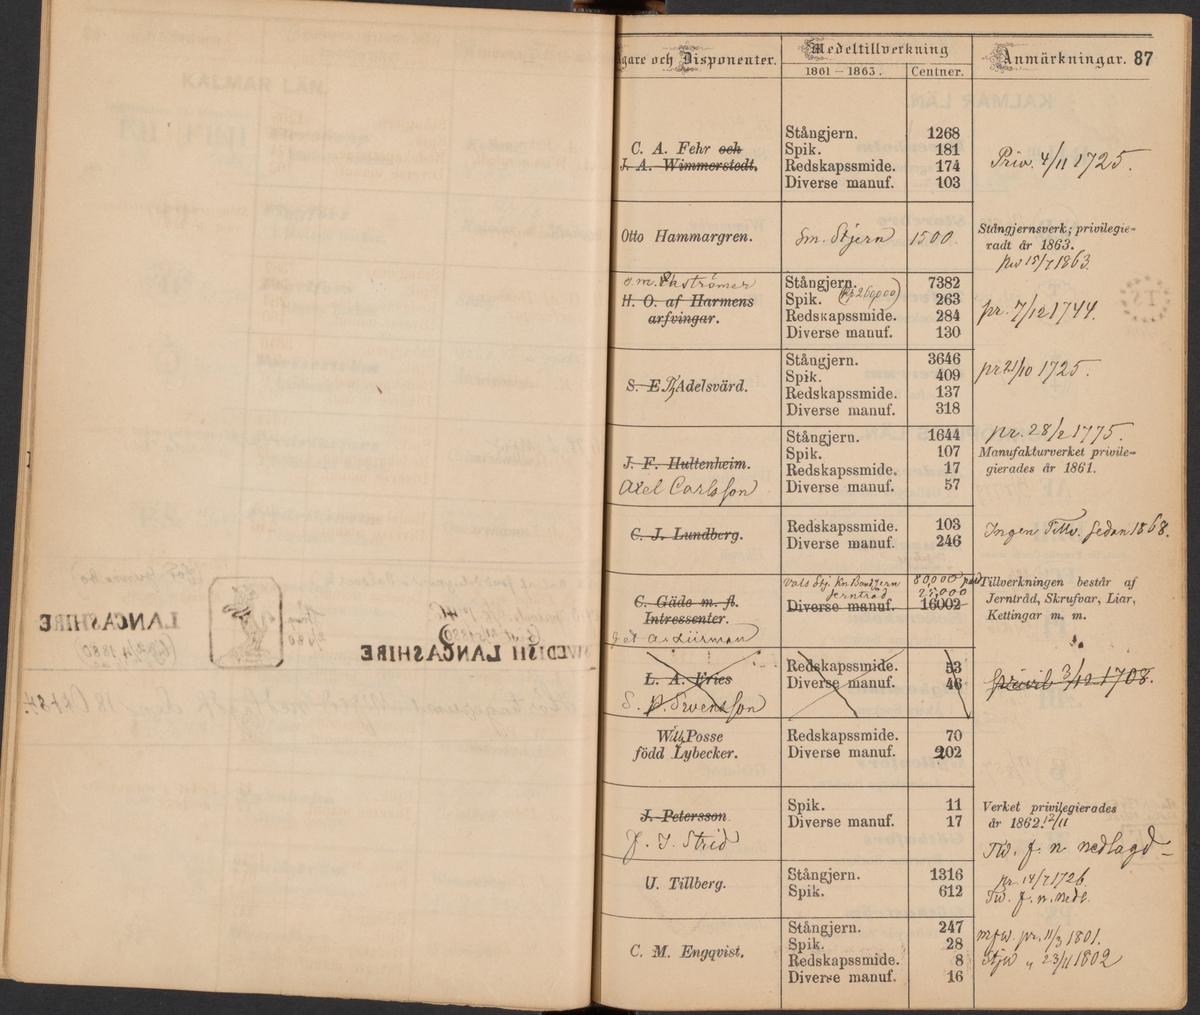 Ägare och Disponenter.
Medeltillverkning
1861–1863.
Centner.
Anmärkningar. 87
C. A. Fehr och
J. A. Wimmerstedt.
Stångjern. 1268
Spik. 181
Redskapssmide. 174
Diverse manuf. 103
Priv. 4/11 1725.
Otto Hammargren.
Sm. Stjern 1500.
Stångjernsverk; privilegie-
radt år 1863.
priv 15/7 1863.
H. O. af Harmens
arfvingar.
Stångjern. 7382
Spik. 263
Redskapssmide. 284
Diverse manuf. 130
pr. 7/12 1744.
TS
S. E. Th Adelsvärd.
Stångjern. 3646
Spik. 409
Redskapssmide. 137
Diverse manuf. 318
pr 21/10 1725.
J. F. Hultenheim.
Axel Carlsson
Stångjern. 1644
Spik. 107
Redskapssmide. 17
Diverse manuf. 57
pr. 28/2 1775.
Manufakturverket privile-
gierades år 1861.
C. J. Lundberg.
Redskapssmide. 103
Diverse manuf. 246
Ingen Tillv. sedan 1868.
C. Gäde m. fl.
Intressenter.
Jerntråd 25,000
Diverse manuf. 16002
Tillverkningen består af
Jerntråd, Skrufvar, Liar,
Kettingar m. m.
L. A. Fries
S. P. Svensson
Redskapssmide. 53
Diverse manuf. 46
privil 3/12 1708.
Posse
född Lybecker.
Redskapssmide. 70
Diverse manuf. 202
J. Petersson
J. T. Strid
Spik. 11
Diverse manuf. 17
Verket privilegierades
år 1862. 12/11
Tw. f. n. nedlagd
U. Tillberg.
Stångjern. 1316
Spik. 612
pr. 14/7 1726.
Tw. f. n. nedl.
C. M. Engqvist.
Stångjern. 247
Spik. 28
Redskapssmide. 8
Diverse manuf. 16
mfw. pr. 11/3 1801.
Stjw " 23/11 1802
LANCASHIRE
SWEDISH LANCASHIRE